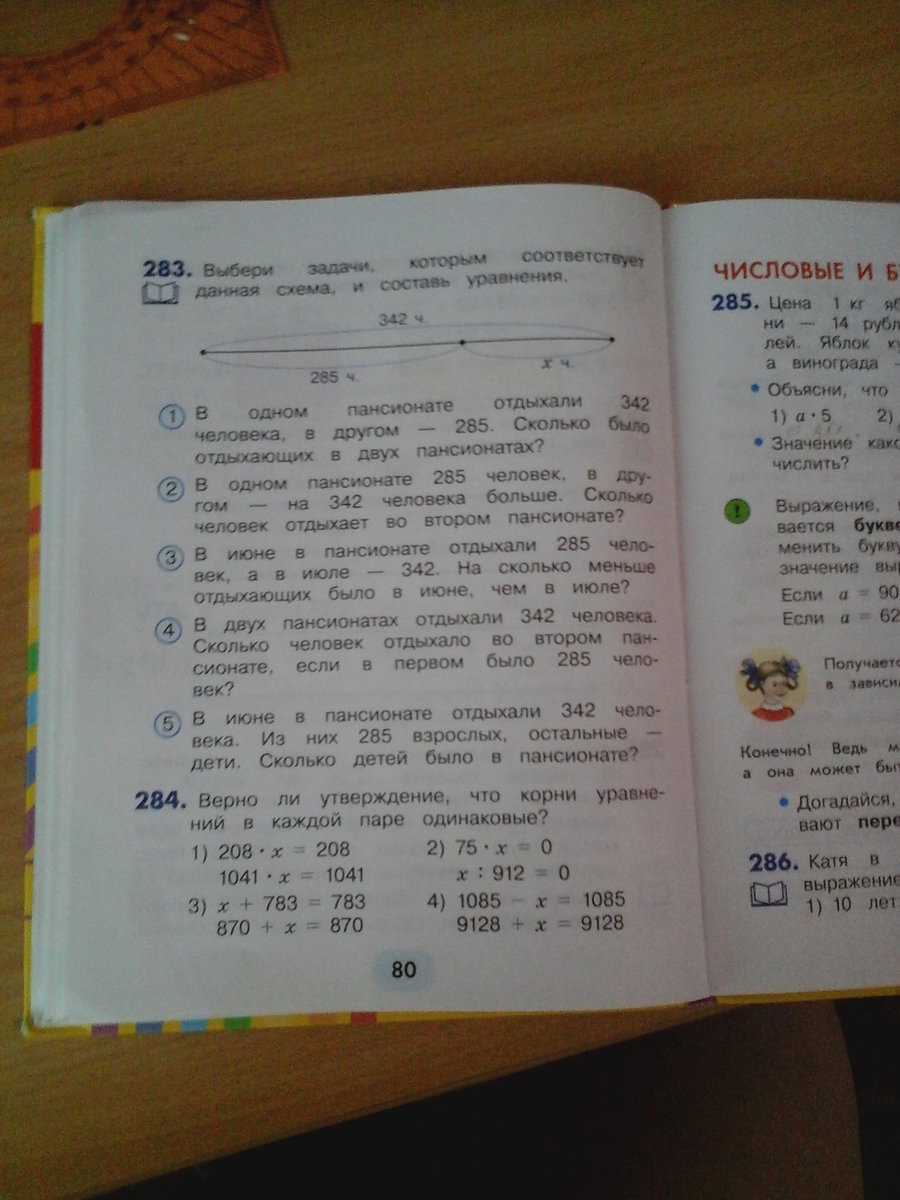 283. Выбери задачи, которым соответствует
данная схема, и составь уравнения.
342 ч.
285 ч.
x ч.
1 В одном пансионате отдыхали 342
человека, в другом — 285. Сколько было
отдыхающих в двух пансионатах?
2 В одном пансионате 285 человек, в дру-
гом — на 342 человека больше. Сколько
человек отдыхает во втором пансионате?
3 В июне в пансионате отдыхали 285 чело-
век, а в июле — 342. На сколько меньше
отдыхающих было в июне, чем в июле?
4 В двух пансионатах отдыхали 342 человека.
Сколько человек отдыхало во втором пан-
сионате, если в первом было 285 чело-
век?
5 В июне в пансионате отдыхали 342 чело-
века. Из них 285 взрослых, остальные —
дети. Сколько детей было в пансионате?
284. Верно ли утверждение, что корни уравне-
ний в каждой паре одинаковые?
1) 208 · x = 208
1041 · x = 1041
2) 75 · x = 0
x : 912 = 0
3) x + 783 = 783
870 + x = 870
4) 1085 − x = 1085
9128 + x = 9128
80
ЧИСЛОВЫЕ И
285. Цена 1 кг
ни — 14
лей. Яблок
а винограда
• Объясни, что
1) a · 5 2)
• Значение
числить?
! Выражение,
вается
менить
значение
Если a = 90
Если a = 62
Получается
в
Конечно! Ведь
а она может
• Догадайся,
вают
286. Катя в
выражение
1) 10 лет